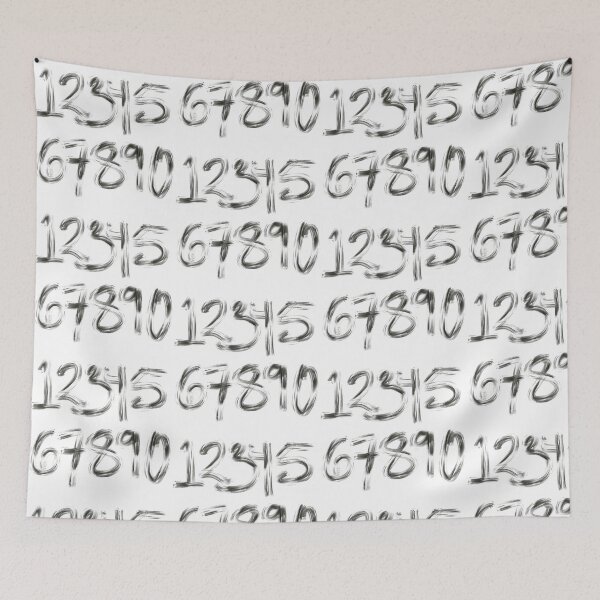 12345 67890 12345 6789
67890 12345 67890 1234
12345 67890 12345 6789
67890 12345 67890 1234
12345 67890 12345 6789
67890 12345 67890 1234
12345 67890 12345 6789